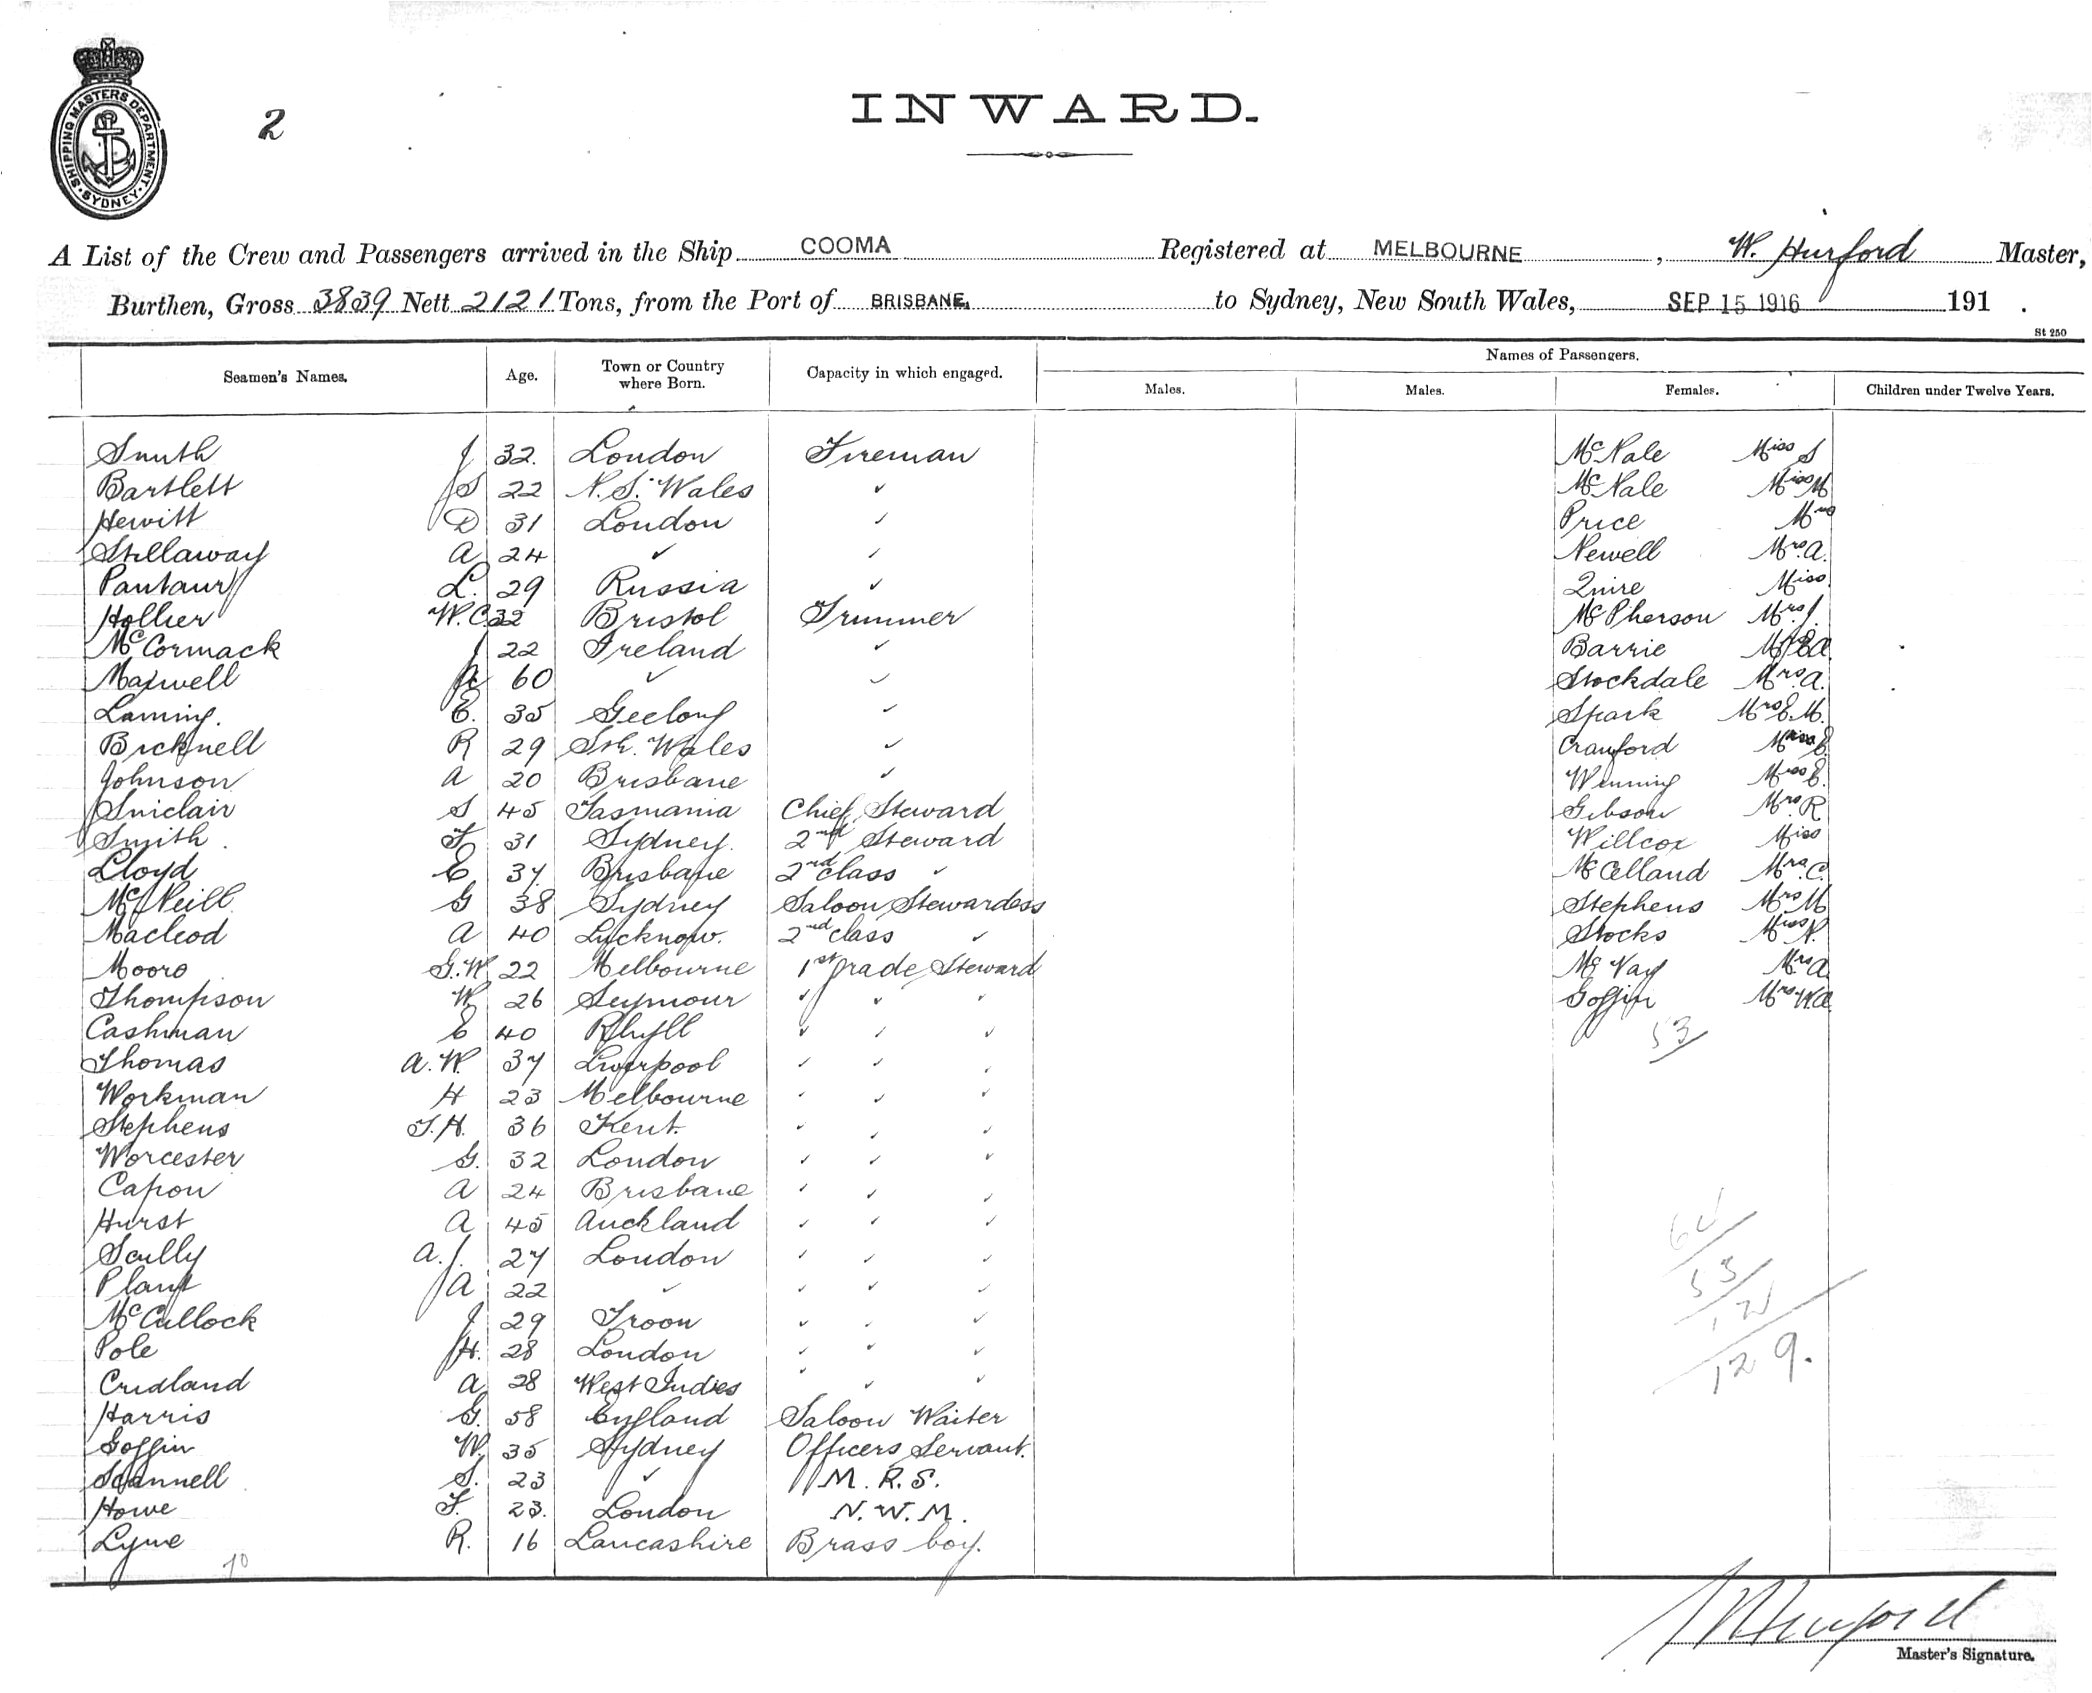 SHIPPING MASTERS DEPARTMENT. SYDNEY
2
INWARD.
A List of the Crew and Passengers arrived in the Ship COOMA Registered at MELBOURNE, W. Hurford Master,
Burthen, Gross 3839 Nett 2121 Tons, from the Port of BRISBANE, to Sydney, New South Wales, SEP 15 1916 191 .
St 250
Names of Passengers.
Seamen's Names. Age. Town or Country where Born. Capacity in which engaged. Males. Males. Females. Children under Twelve Years.
Smith J 32. London Fireman McNale Miss S
Bartlett J S 22 N. S. Wales ✓ McNale Miss M
Hewitt D 31 London ✓ Price Mrs
Stillaway A 24 ✓ ✓ Newell Mrs. A.
L. 29 Russia ✓ Quire Miss
Hollier W. C. 32 Bristol Trimmer McPherson Mrs J.
McCormack J 22 Ireland ✓ Barrie
Maxwell 60 ✓ ✓ Stockdale Mrs. A.
Laming. E. 35 Geelong ✓ Spark Mrs E. M.
Bicknell R 29 Sth. Wales ✓ Cranford Miss E.
Johnson A 20 Brisbane ✓ Winning Miss E.
Sinclair S 45 Tasmania Chief Steward Gibson Mrs R
Smith F 31 Sydney. 2nd Steward Willcox Miss
Lloyd E 37 Brisbane 2nd class ✓ McClelland Mrs. C.
McNeill G 38 Sydney Saloon Stewardess Stephens Mrs M
Macleod A 40 Lucknow. 2nd class ✓ Stocks Miss N.
Moore G. W 22 Melbourne 1st grade Steward McVay Mrs A
Thompson W. 26 Seymour ✓ ✓ ✓ Goffin Mrs W.A.
Cashman E 40 Rhyll ✓ ✓ ✓ 53
Thomas A. W. 37 Liverpool ✓ ✓ ✓
Workman H 23 Melbourne ✓ ✓ ✓
Stephens T. H. 36 Kent. ✓ ✓ ✓
Worcester G. 32 London ✓ ✓ ✓
Capon A 24 Brisbane ✓ ✓ ✓
Hurst A 45 Auckland ✓ ✓ ✓
Scully A. J. 27 London ✓ ✓ ✓
Plant A 22 ✓ ✓ ✓ ✓ 53
McCullock J 29 Troon ✓ ✓ ✓
Pole H. 28 London ✓ ✓ ✓ 129.
Cridland A 28 West Indies ✓ ✓ ✓
Harris G. 58 England Saloon Waiter
Goffin W. 35 Sydney Officers Servant.
Scannell S. 23 ✓ M. R. S.
Howe F. 23. London N. W. M.
Lyme R. 16 Lancashire Brass boy.
70
Master's Signature.